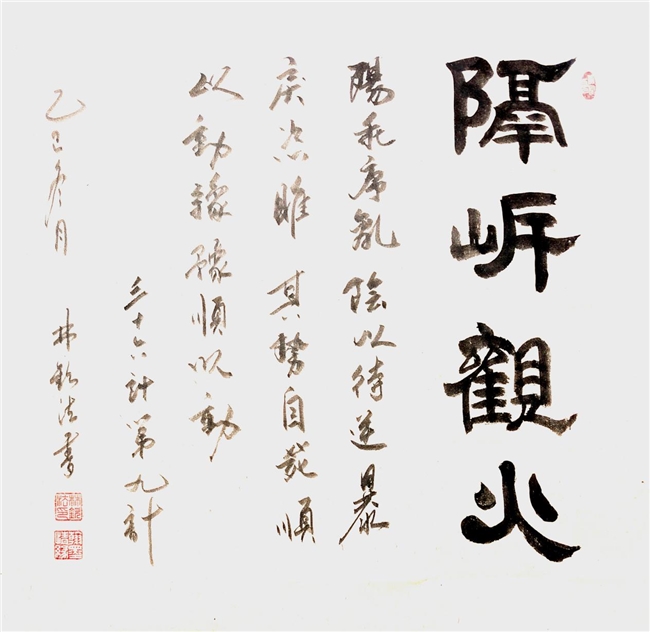 隔岸觀火
陽乖序亂陰以待逆暴
戾恣睢其勢自斃順
以動豫豫順以動
三十六計第九計
乙巳冬月 林法書